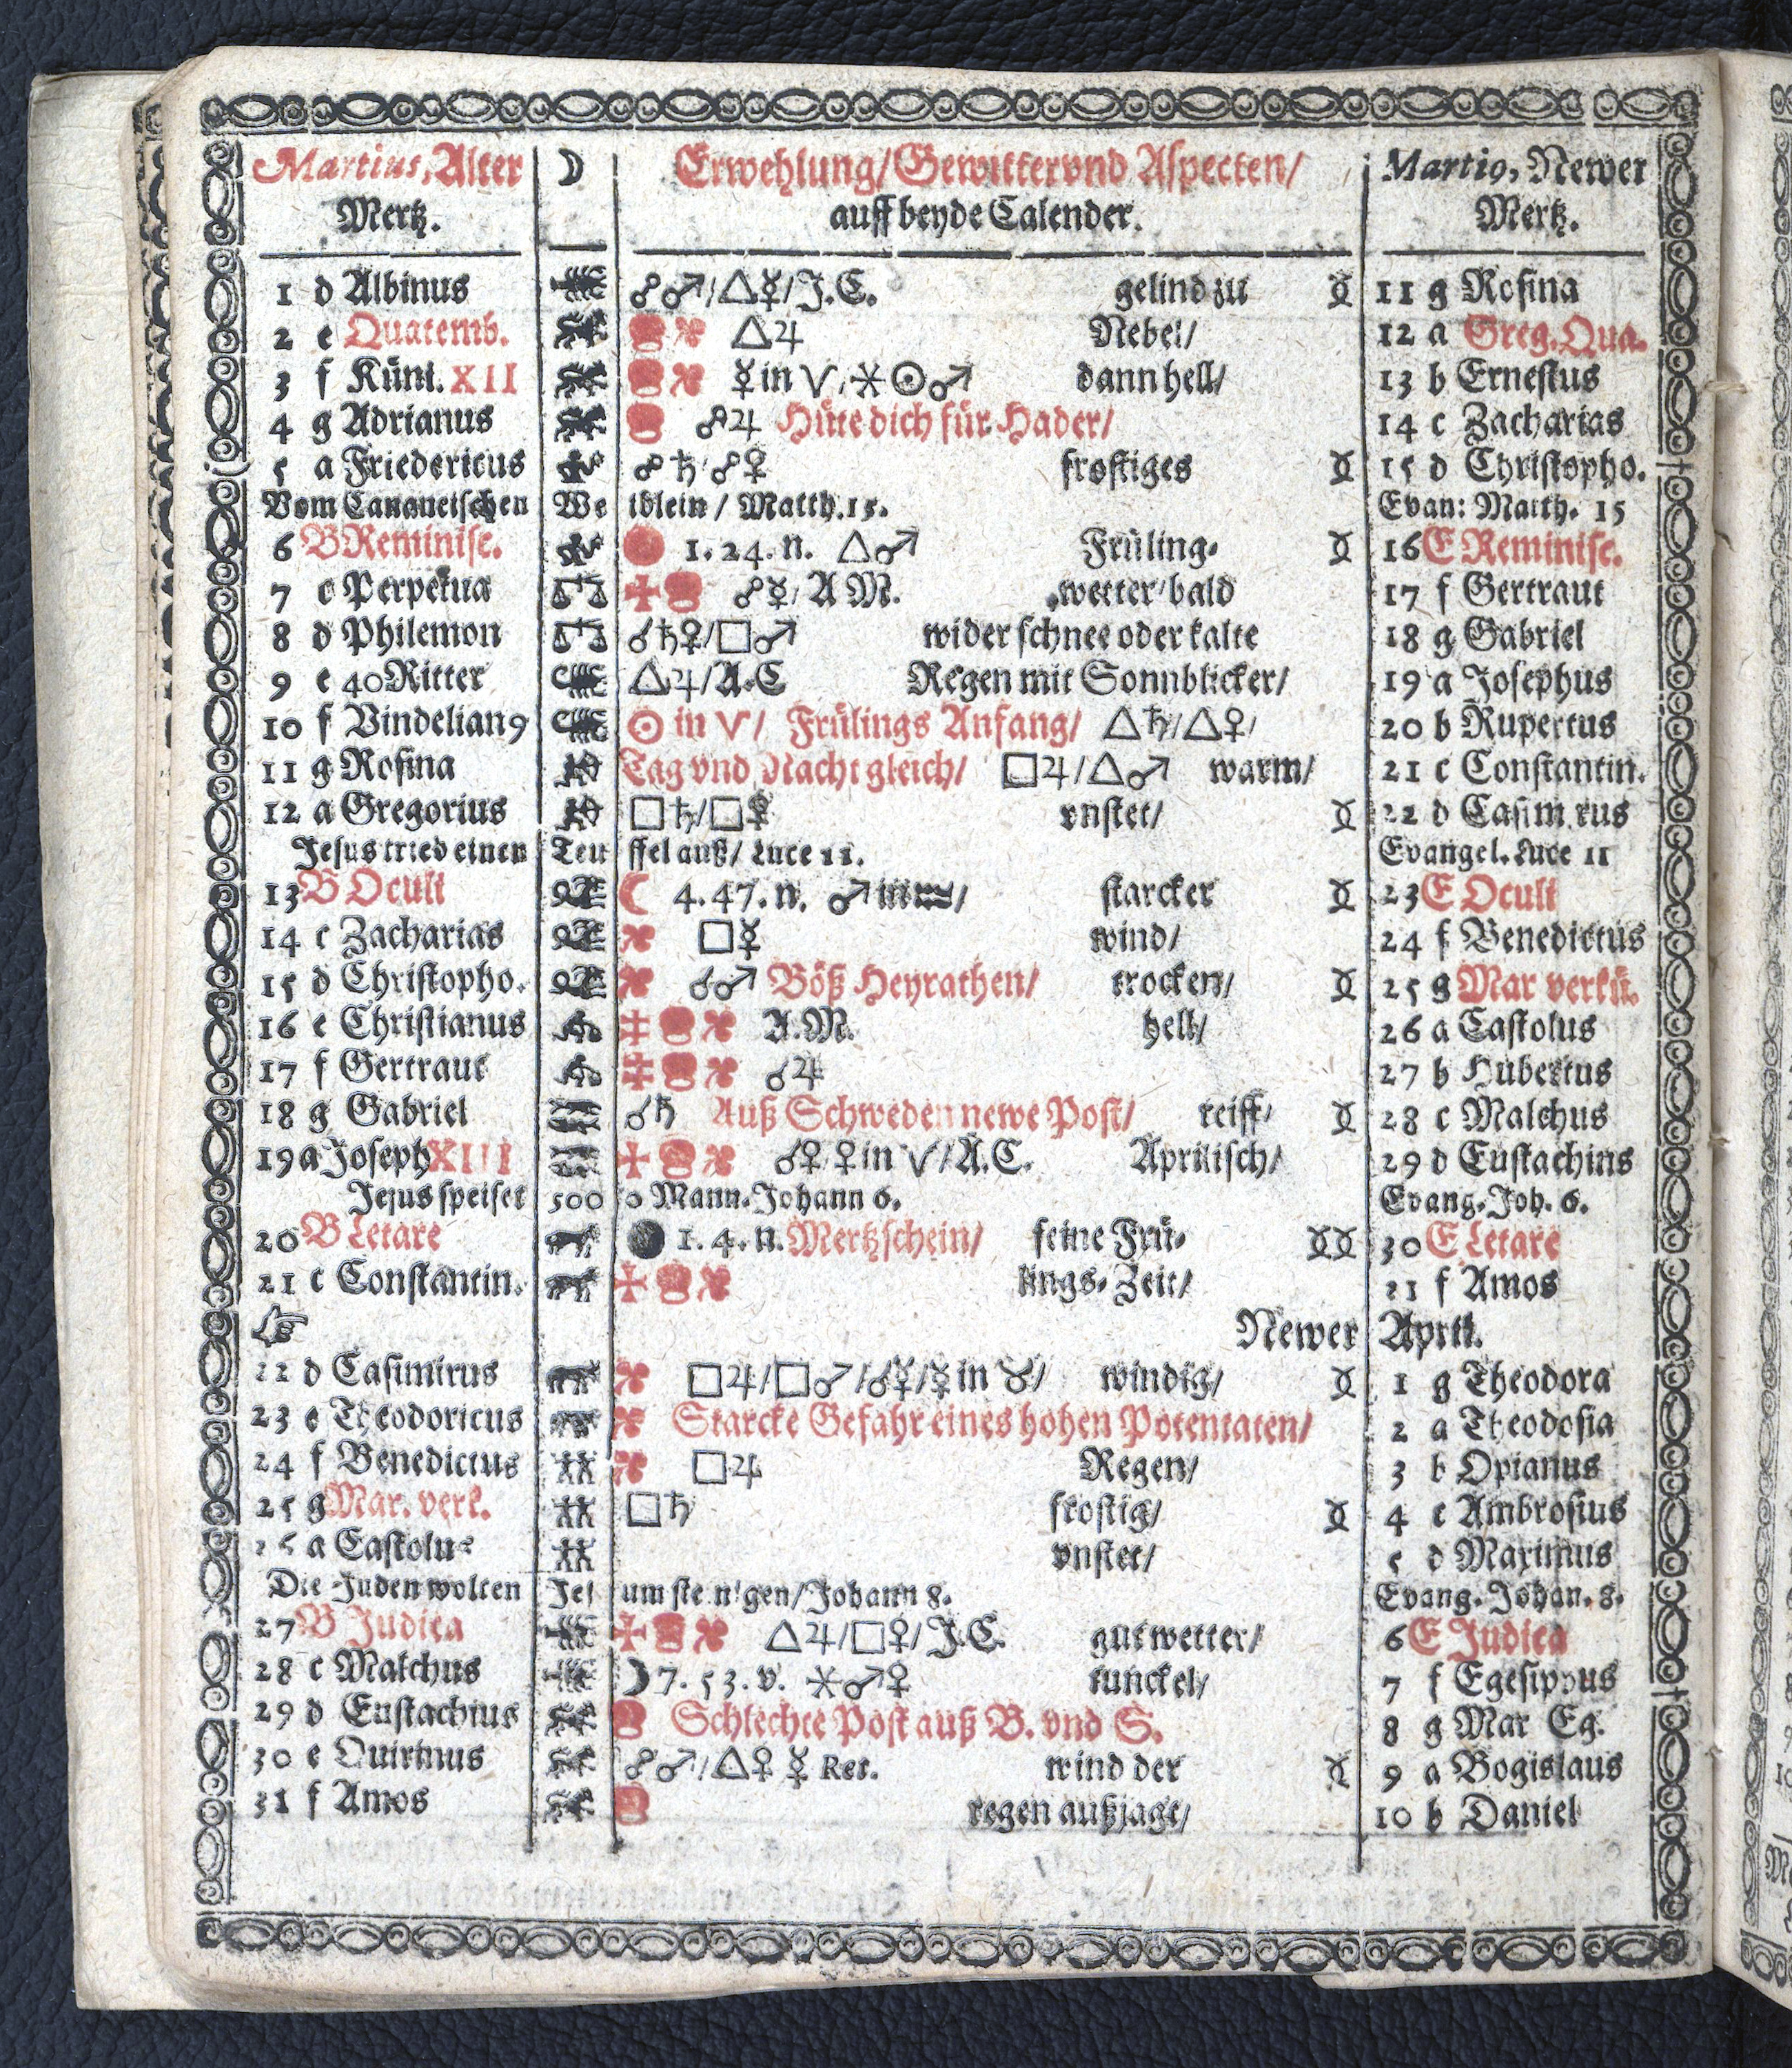 Martius, Alter ☽ Erwehlung/Gewitter vnd Aspecten/ Marti9, Newer
Mertz. auff beyde Calender. Mertz.
1 d Albinus ☍♂/△☿/J.C. gelind zu 11 g Rosina
2 e Quatemb. △♃ Nebel/ 12 a Greg. Qua.
3 f Küni. XII ☿ in ♈, ⚹☉♂ dann hell/ 13 b Ernestus
4 g Adrianus ☍♃ Hüte dich für Hader/ 14 c Zacharias
5 a Friedericus ☍♄/☍♀ frostiges 15 d Christopho.
Vom Cananeischen We iblein / Matth. 15. Evan: Matth. 15
6 B Reminisc. 1. 24. n. △♂ Früling- 16 E Reminisc.
7 c Perpetua ☍☿, A M. wetter/ bald 17 f Gertraut
8 d Philemon ☌♄♀/□♂ wider schnee oder kalte 18 g Gabriel
9 e 40 Ritter △♃/A.C Regen mit Sonnblicker/ 19 a Josephus
10 f Vindelian9 ☉ in ♈/ Frülings Anfang/ △♄/△♀/ 20 b Rupertus
11 g Rosina Tag vnd Nacht gleich/ □♃/△♂ warm/ 21 c Constantin.
12 a Gregorius □♄/□♀ vnstet/ 22 d Casim rus
Jesus tried einen Teu ffel auß/ Luce 11. Evangel. Luce 11
13 B Oculi ☾ 4. 47. n. ♂ in ♒/ starcker 23 E Oculi
14 c Zacharias □☿ wind/ 24 f Benedictus
15 d Christopho. ☌♂ Böß Heyrathen/ trocken/ 25 g Mar verkü.
16 e Christianus A.M. hell/ 26 a Castolus
17 f Gertraut ☌♃ 27 b Hubertus
18 g Gabriel ☌♄ Auß Schweden newe Post/ reiff/ 28 c Malchus
19 a Joseph XIII ☌♀ ♀ in ♈/A.C. Aprilisch/ 29 d Eustachius
Jesus speiset 500 0 Mann. Johann 6. Evang. Joh. 6.
20 B Letare ● 1. 4. n. Mertzschein/ feine Frü- 30 E Letare
21 c Constantin. lings-Zeit/ 31 f Amos
☞ Newer April.
22 d Casimirus □♃/□♂/☌☿/☿ in ♉/ windig/ 1 g Theodora
23 e Theodoricus Starcke Gefahr eines hohen Potentaten/ 2 a Theodosia
24 f Benedictus □♃ Regen/ 3 b Opianus
25 g Mar. verk. □♄ frostig/ 4 c Ambrosius
26 a Castolus vnstet/ 5 d Maximus
Die Juden wolten Jes um stenigen/Johann 8. Evang. Johan. 8.
27 B Judica △♃/□♀/ J.C. gut wetter/ 6 E Judica
28 c Malchus ☽ 7. 53. v. ⚹♂♀ tunckel/ 7 f Egesippus
29 d Eustachius Schlechte Post auß B. vnd S. 8 g Mar Eg.
30 e Quirinus ☍♂/△♀ ☿ Ret. wind der 9 a Bogislaus
31 f Amos regen außjagt/ 10 b Daniel